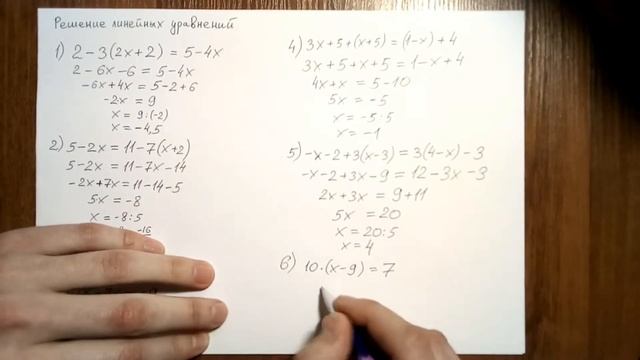 Решение линейных уравнений
1) 2-3(2x+2)=5-4x
2-6x-6=5-4x
-6x+4x=5-2+6
-2x=9
x=9:(-2)
x=-4,5
2) 5-2x=11-7(x+2)
5-2x=11-7x-14
-2x+7x=11-14-5
5x=-8
x=-8:5
4) 3x+5+(x+5)=(1-x)+4
3x+5+x+5=1-x+4
4x+x=5-10
5x=-5
x=-5:5
x=-1
5) -x-2+3(x-3)=3(4-x)-3
-x-2+3x-9=12-3x-3
2x+3x=9+11
5x=20
x=20:5
x=4
6) 10·(x-9)=7